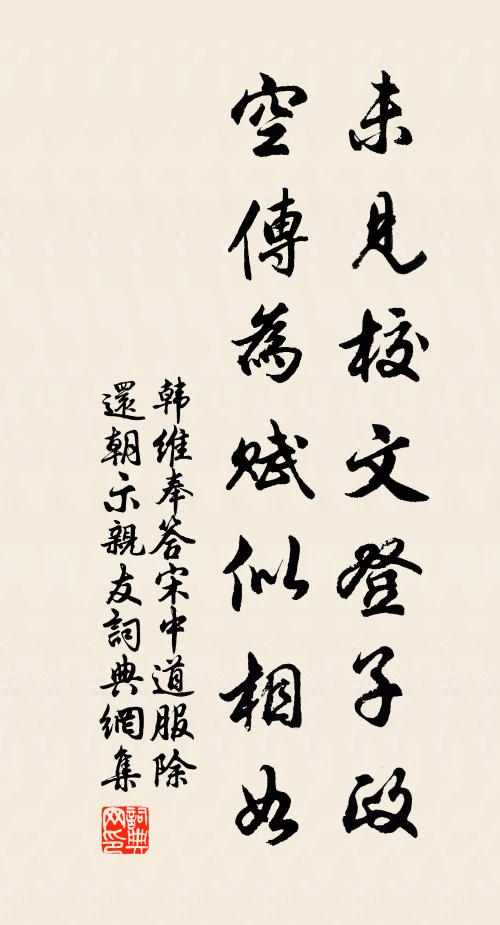 未見校文登子政
空傳為賦似相如
韩維奉答宋中道服除
還朝示親友詞典網集
詞典網印